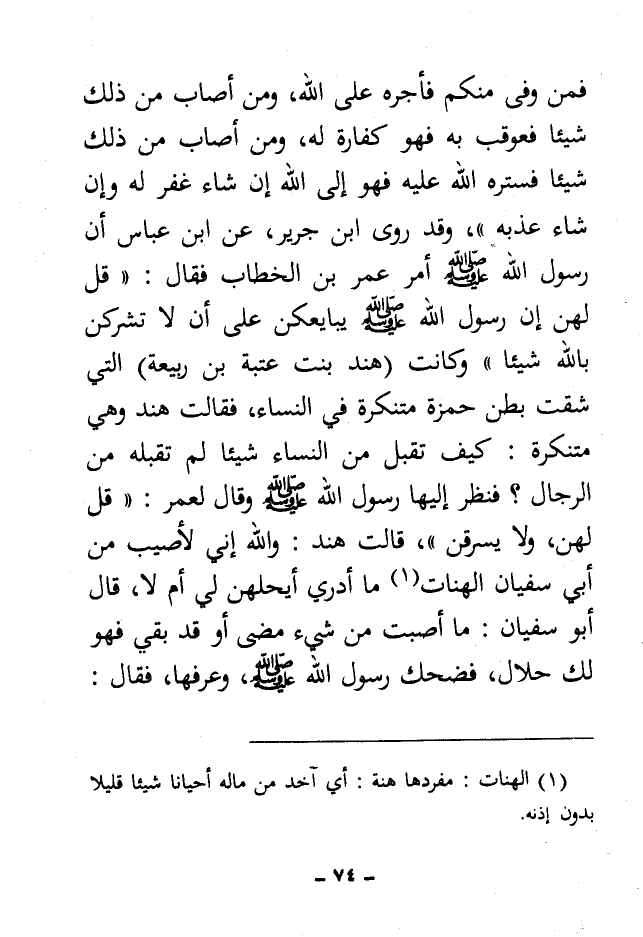 فمن وفى منكم فأجره على الله، ومن أصاب من ذلك
شيئا فعوقب به فهو كفارة له، ومن أصاب من ذلك
شيئا فستره الله عليه فهو إلى الله إن شاء غفر له وإن
شاء عذبه »، وقد روى ابن جرير، عن ابن عباس أن
رسول الله ﷺ أمر عمر بن الخطاب فقال : « قل
لهن إن رسول الله ﷺ يبايعكن على أن لا تشركن
بالله شيئا » وكانت (هند بنت عتبة بن ربيعة) التي
شقت بطن حمزة متنكرة في النساء، فقالت هند وهي
متنكرة : كيف تقبل من النساء شيئا لم تقبله من
الرجال ؟ فنظر إليها رسول الله ﷺ وقال لعمر : « قل
لهن، ولا يسرقن »، قالت هند : والله إني لأصيب من
أبي سفيان الهنات(١) ما أدري أيحلهن لي أم لا، قال
أبو سفيان : ما أصبت من شيء مضى أو قد بقي فهو
لك حلال، فضحك رسول الله ﷺ، وعرفها، فقال :
(١) الهنات : مفردها هنة : أي آخد من ماله أحيانا شيئا قليلا
بدون إذنه.
- ٧٤ -